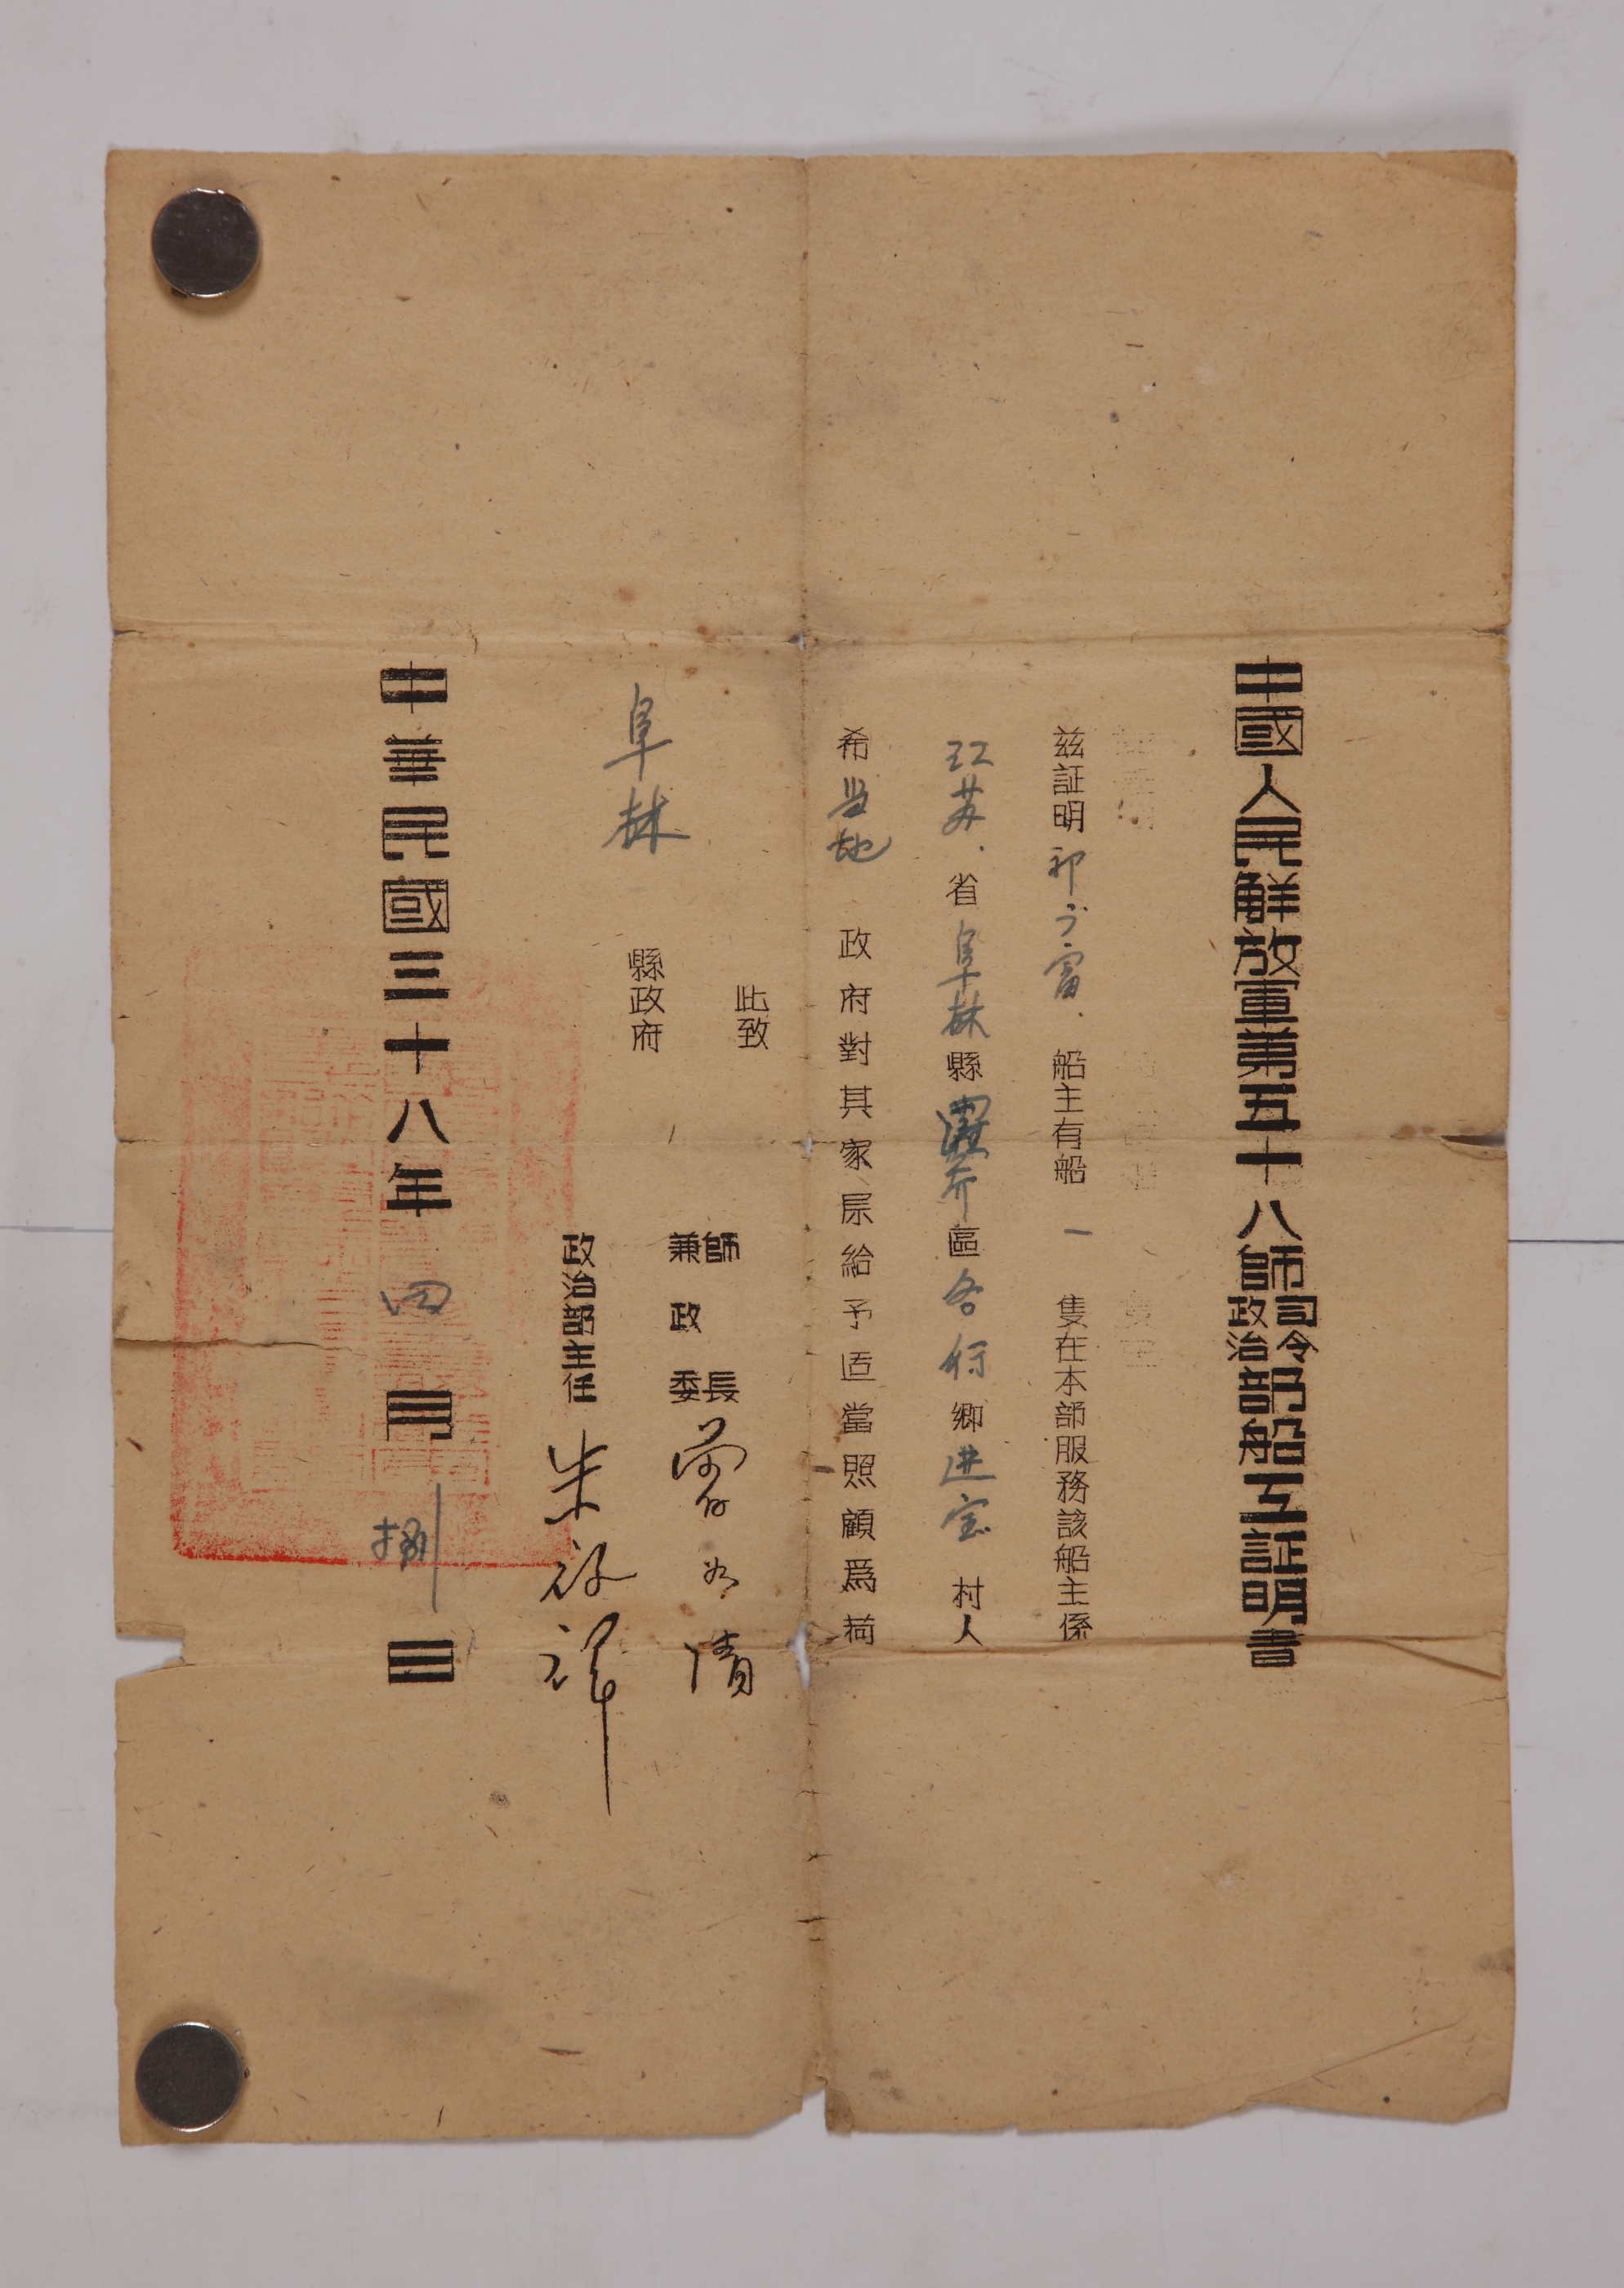 中國人民解放軍第五十八師司令政治部船工証明書
兹証明祁广富船主有船一隻在本部服務該船主係
江苏省阜林縣區各行鄉进宝村人
希当地政府對其家屬給予适當照顧爲荷
此致
阜林縣政府
師長兼政委
政治部主任朱啟祥
中華民國三十八年四月日